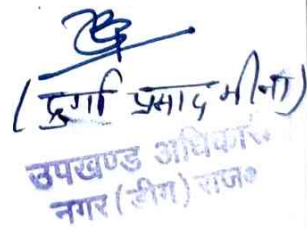 (दुर्गा प्रसाद मीना)
उपखण्ड अधिकारी
नगर (डीग) राज०